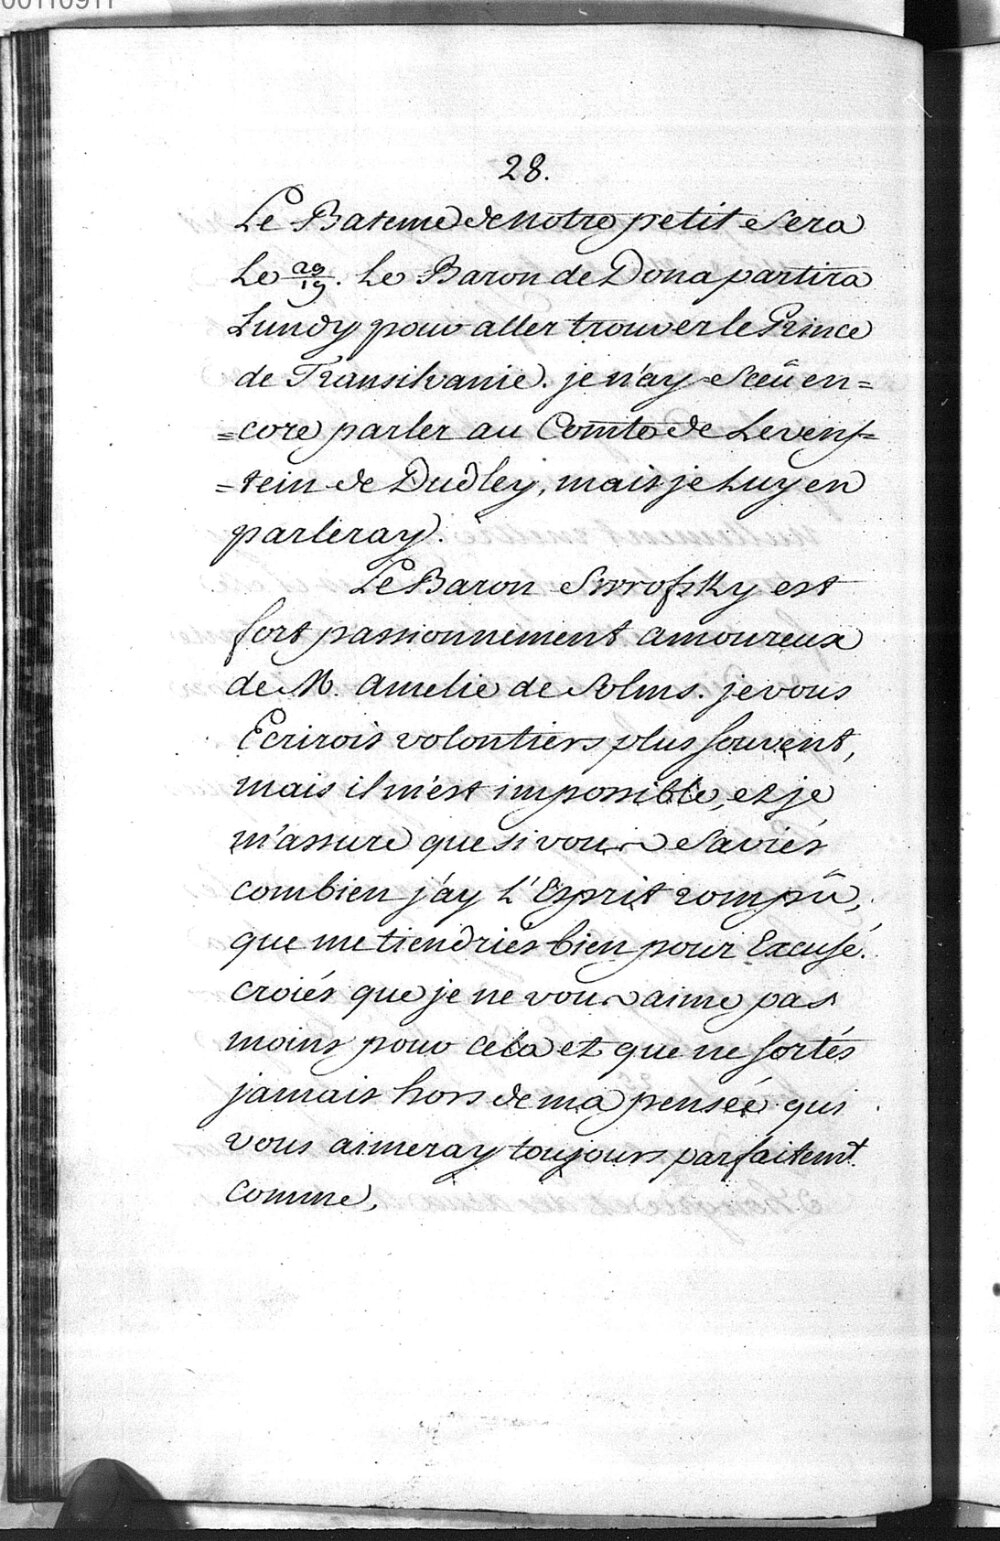 00110911
28.
Le Bateme de notre petit sera
Le 29/19. Le Baron de Dona partira
Lundy pour aller trouver le Prince
de Transilvanie. je n'ay sceû en=
=core parler au Comte de Levenf=
=tein de Dudley, mais je Luy en
parleray.
Le Baron Smrofsky est
fort passionnement amoureux
de M. Amelie de Solms. je vous
Ecrirois volontiers plus souvent,
mais il m'est impossible, et je
m'assure que si vous saviés
combien j'ay L'Esprit rompû,
que me tiendriés bien pour Excusé.
croiés que je ne vous aime pas
moins pour cela et que ne sortés
jamais hors de ma pensée qui
vous aimeray toujours parfaitemt.
comme,